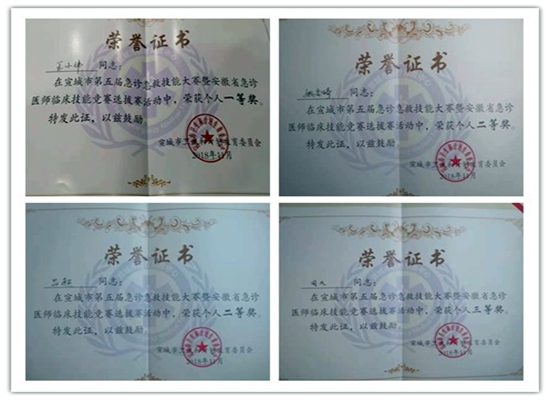 荣誉证书
同志：
在宣城市第五届急诊急救技能大赛暨安徽省急诊
医师临床技能竞赛选拔赛活动中，荣获个人一等奖。
特发此证，以兹鼓励
宣城市
育委员会
2018年11月
荣誉证书
同志：
在宣城市第五届急诊急救技能大赛暨安徽省急诊
医师临床技能竞赛选拔赛活动中，荣获个人二等奖。
特发此证，以兹鼓励。
宣城市
育委员会
2018年11月
荣誉证书
吕和 同志：
在宣城市第五届急诊急救技能大赛暨安徽省急诊
医师临床技能竞赛选拔赛活动中，荣获个人二等奖。
特发此证，以兹鼓励。
宣城市
育委员会
2018年11月
荣誉证书
同志：
在宣城市第五届急诊急救技能大赛暨安徽省急诊
医师临床技能竞赛选拔赛活动中，荣获个人三等奖。
特发此证，以兹鼓励。
宣城市
育委员会
2018年11月